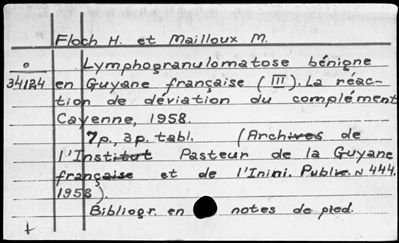 Floch H. et Mailloux M.
o Lymphogranulomatose bénigne
34124 en Guyane française (III). La réac-
tion de déviation du complément
Cayenne, 1958.
7p., 3p. tabl. (Archives de
l'Institut Pasteur de la Guyane
française et de l'Inini. Publ. N 444.
1958).
Bibliogr. en notes de pied.